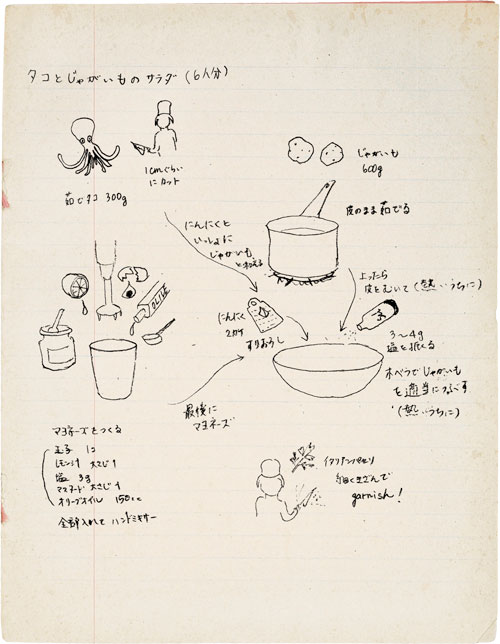 タコとじゃがいものサラダ(6人分)
1cmぐらい
にカット
茹でタコ 300g
じゃがいも
600g
皮のまま茹でる
にんにくと
いっしょに
じゃがいも
と和える
上ったら
皮をむいて(熱いうちに)
OLIVE
にんにく
2カケ
すりおろし
3〜4g
塩を振る
木ベラでじゃがいも
を適当につぶす
(熱いうちに)
最後に
マヨネーズ
マヨネーズをつくる
玉子 1コ
レモン汁 大さじ1
塩 3g
マスタード 大さじ1
オリーブオイル 150cc
全部入れて ハンドミキサー
イタリアンパセリ
細くきざんで
garnish!